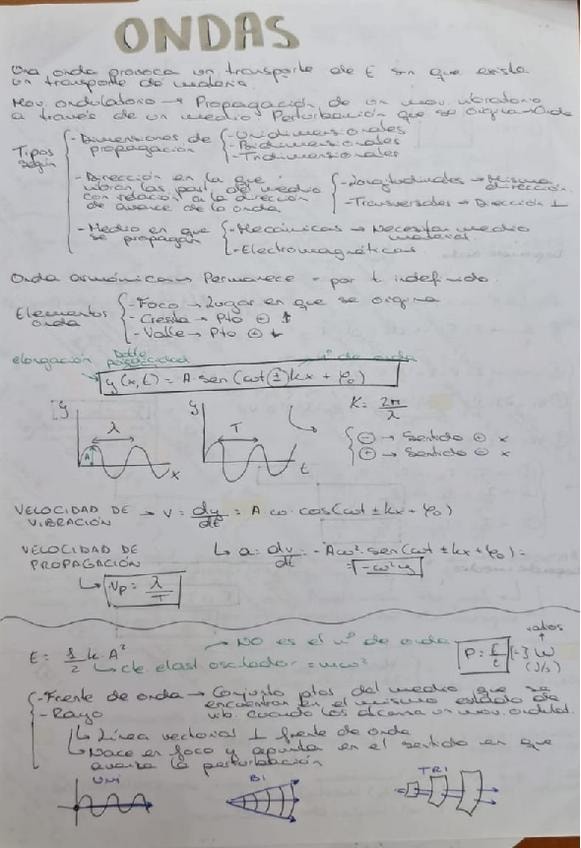 ONDAS
Una onda provoca un transporte de E sin que exista
un transporte de materia.
Mov. ondulatorio → Propagación de un mov. vibratorio
a través de un medio. Perturbación que se origina → Onda
Tipos según
- Dimensiones de propagación
- Unidimensionales
- Bidimensionales
- Tridimensionales
- Dirección en la que vibran las part. del medio con relación a la dirección de avance de la onda
- Longitudinales → Misma dirección.
- Transversales → Dirección ⊥
- Medio en que se propagan
- Mecánicas → Necesitan medio material.
- Electromagnéticas.
Onda armónica → Permanece por t indefinido.
Elementos onda
- Foco → Lugar en que se origina
- Cresta → Pto ⊕ ↑
- Valle → Pto ⊕ ↓
elongación Doble periodicidad nº de onda
y(x,t) = A·sen(ωt(±)kx + φ₀)
y λ A x
y T t
K = 2π/λ
⊖ → Sentido ⊕ x
⊕ → Sentido ⊖ x
VELOCIDAD DE VIBRACIÓN → v = dy/dt = A·ω·cos(ωt ± kx + φ₀)
↳ a = dv/dt = -Aω²·sen(ωt ± kx + φ₀) =
= -ω²y
VELOCIDAD DE PROPAGACIÓN
↳ Vp = λ/T
E = 1/2 k·A²
→ NO es el nº de onda
↳ cte elast. oscilador = mω²
P = E/t [→] W (J/s)
vatios
- Frente de onda → Conjunto ptos del medio que se
encuentran en el mismo estado de
vib. cuando los alcanza un mov. ondulat.
- Rayo
↳ Línea vectorial ⊥ frente de onda
↳ Nace en foco y apunta en el sentido en que
avanza la perturbación
UNI BI TRI